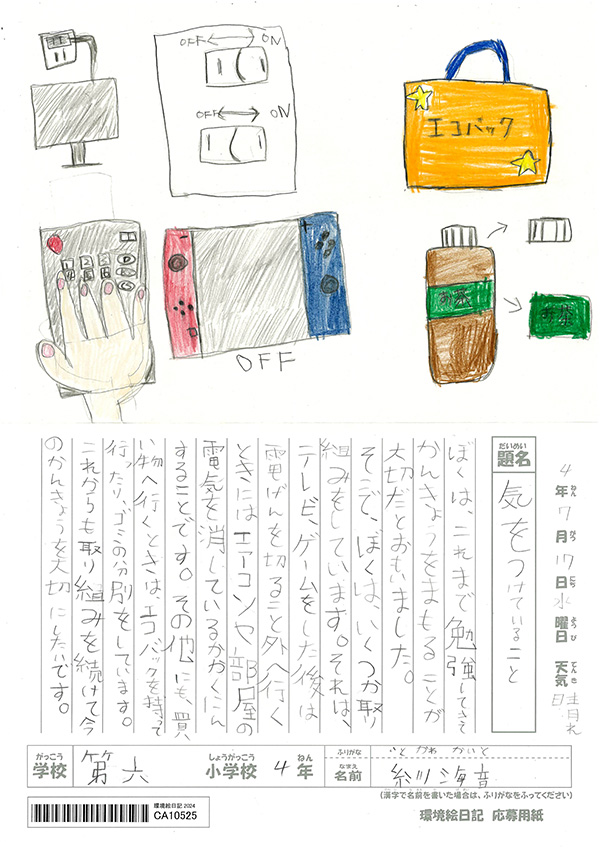 OFF ON
OFF ON
エコバック
お茶
お茶
OFF
4年7月17日水曜日 天気
ねん がつ にち ようび てんき
だいめい
題名
気をつけていること
ぼくは、これまで勉強してきて
かんきょうをまもることが
大切だとおもいました。
そこで、ぼくは、いくつか取り
組みをしています。それは、
テレビ、ゲームをした後は
電げんを切ること外へ行く
ときにはエアコンや部屋の
電気を消しているかかくにん
することです。その他にも、買
い物へ行くときは、エコバックを持って
行ったり、ゴミの分別をしています。
これからも取り組みを続けて今
のかんきょうを大切にしたいです。
がっこう
学校
第六
しょうがっこう
小学校
4
ねん
年
ふりがな
いとかわ かいと
なまえ
名前
糸川 海音
(漢字で名前を書いた場合は、ふりがなをふってください)
環境絵日記 2024
CA10525
環境絵日記 応募用紙